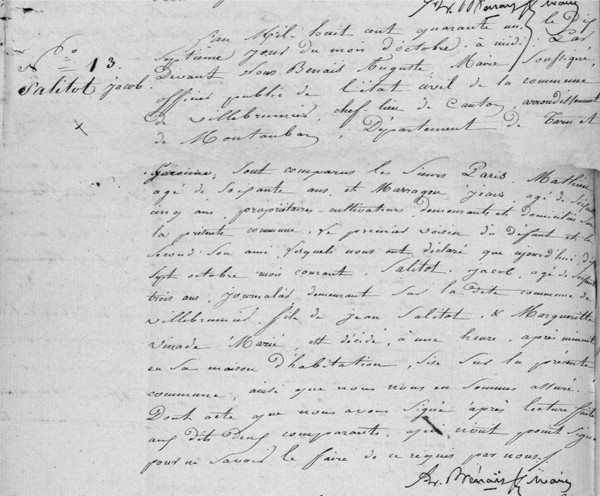 N° 13.
Salitot Jacob
L'an Mil huit cent quarante un, le Dix
Septième jour du mois d'octobre, à midi, Par
Devant Nous Benais Auguste Marie Soussigné,
officier public de l'état civil de la commune
de villebrumier, chef-lieu de Canton, arrondissement
de Montauban, Département de Tarn et
Garonne; sont comparus les Sieurs Paris Mathieu
agé de Soixante ans, et Marragou Jean, agé de
cinq ans, propriétaires-cultivateurs demeurants et Domiciliés
la présente commune, Le premier voisin du Défunt et le
second Son ami, lesquels nous ont déclaré que aujourd'hui Dix
sept octobre mois courant, Salitot Jacob, agé de
trois ans, journalier demeurant sur la dite commune de
villebrumier, fils de Jean Salitot, & Marguerite
vinade Marie, est décédé, à une heure, après minuit
en Sa maison d'habitation, sise sur la présente
commune, ainsi que nous nous en Sommes assuré.
Dont acte que nous avons Signé après lecture faite
aux dits Deux comparants, qui n'ont point Signé
pour ne Savoir le faire de ce requis par nous./.